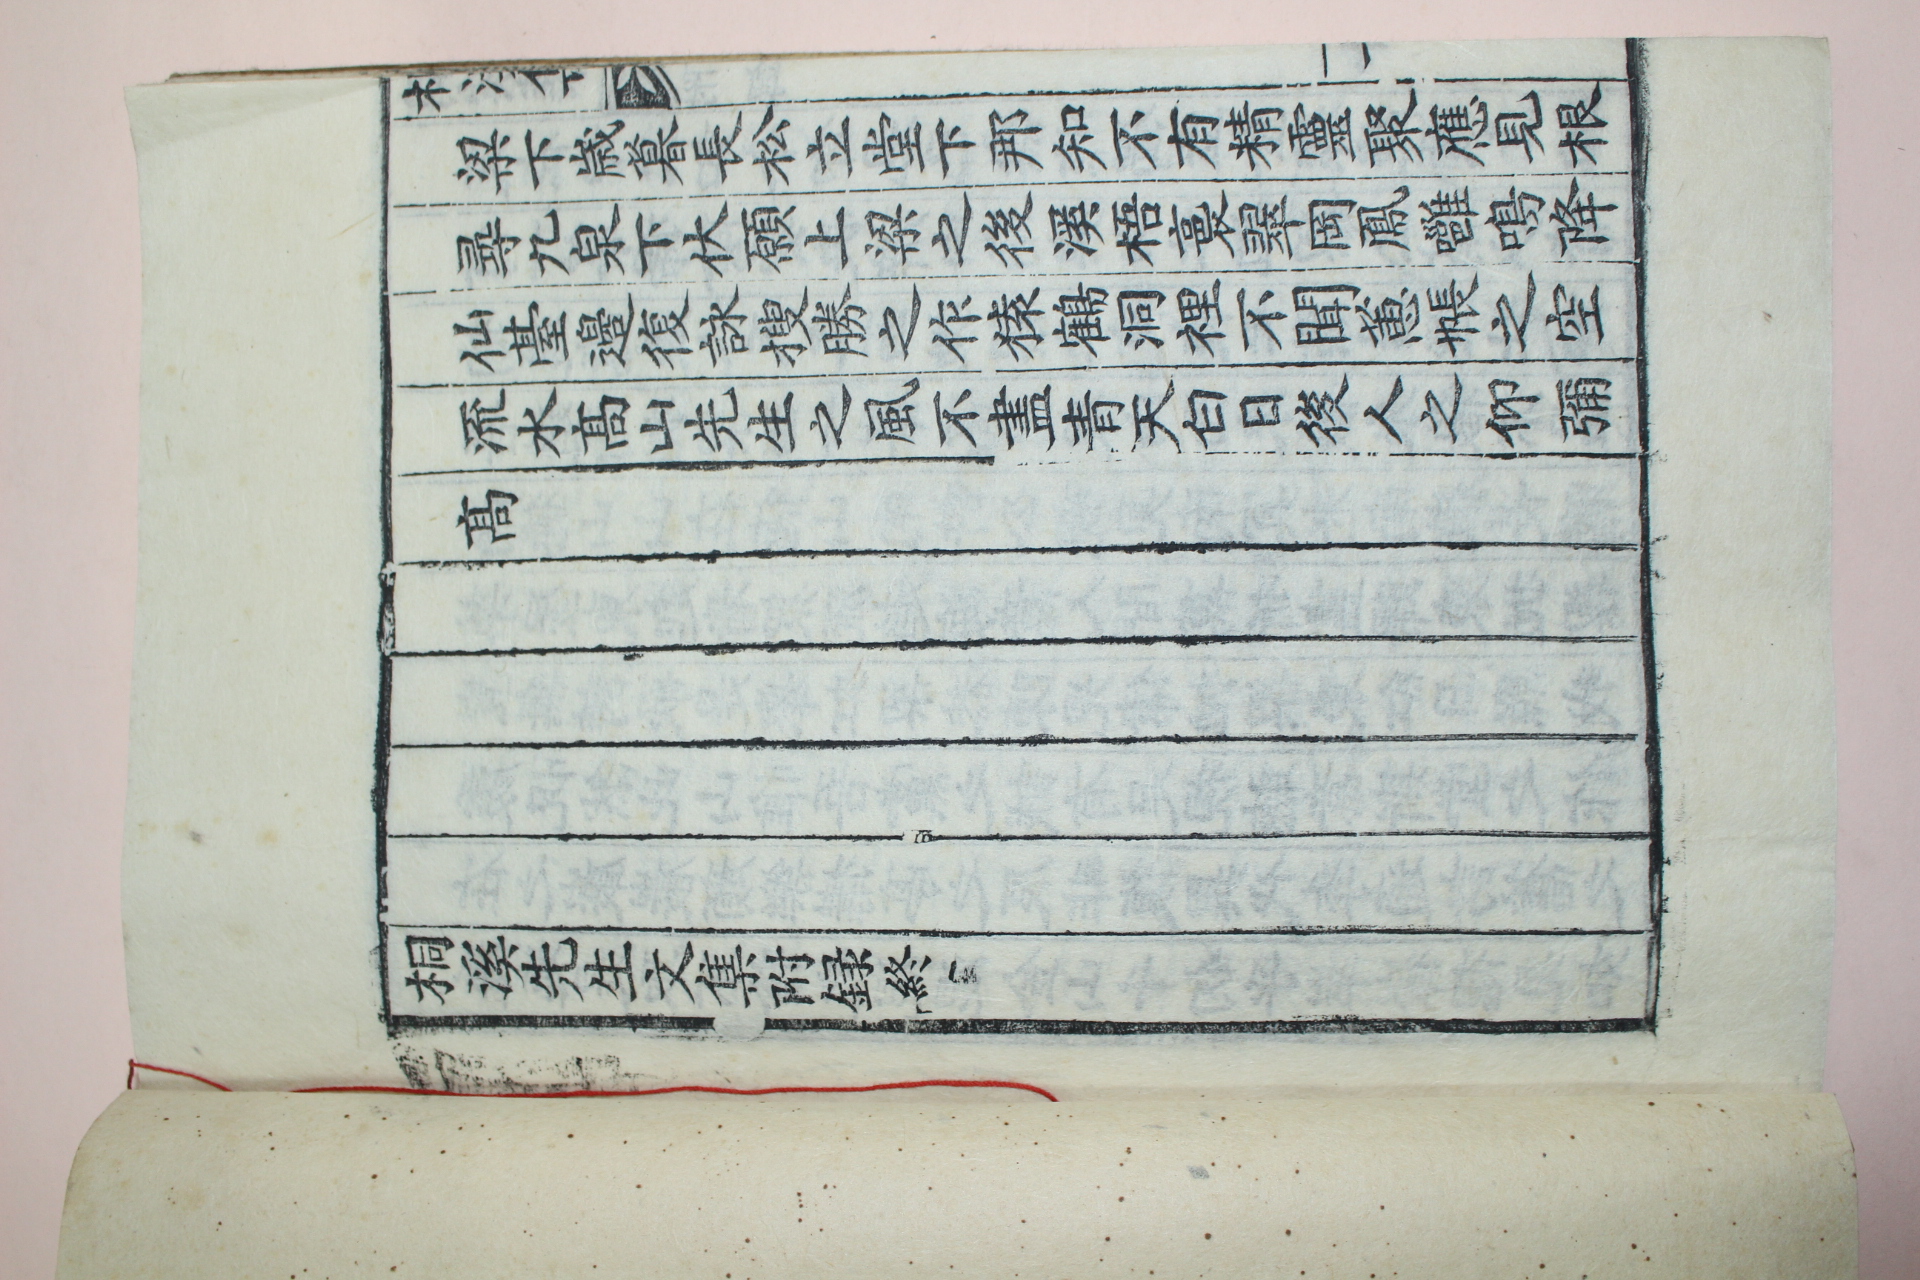 梁下歲暮長松立堂下那知不有精靈聚應見根
尋九泉下伏願上梁之後溪梧裊翠岡鳳噰鳴降
仙臺邊復詠搜勝之作猿鶴洞裡不聞蕙帳之空
流水髙山先生之風不盡青天白日後人之仰彌
髙
桐溪先生文集附錄終